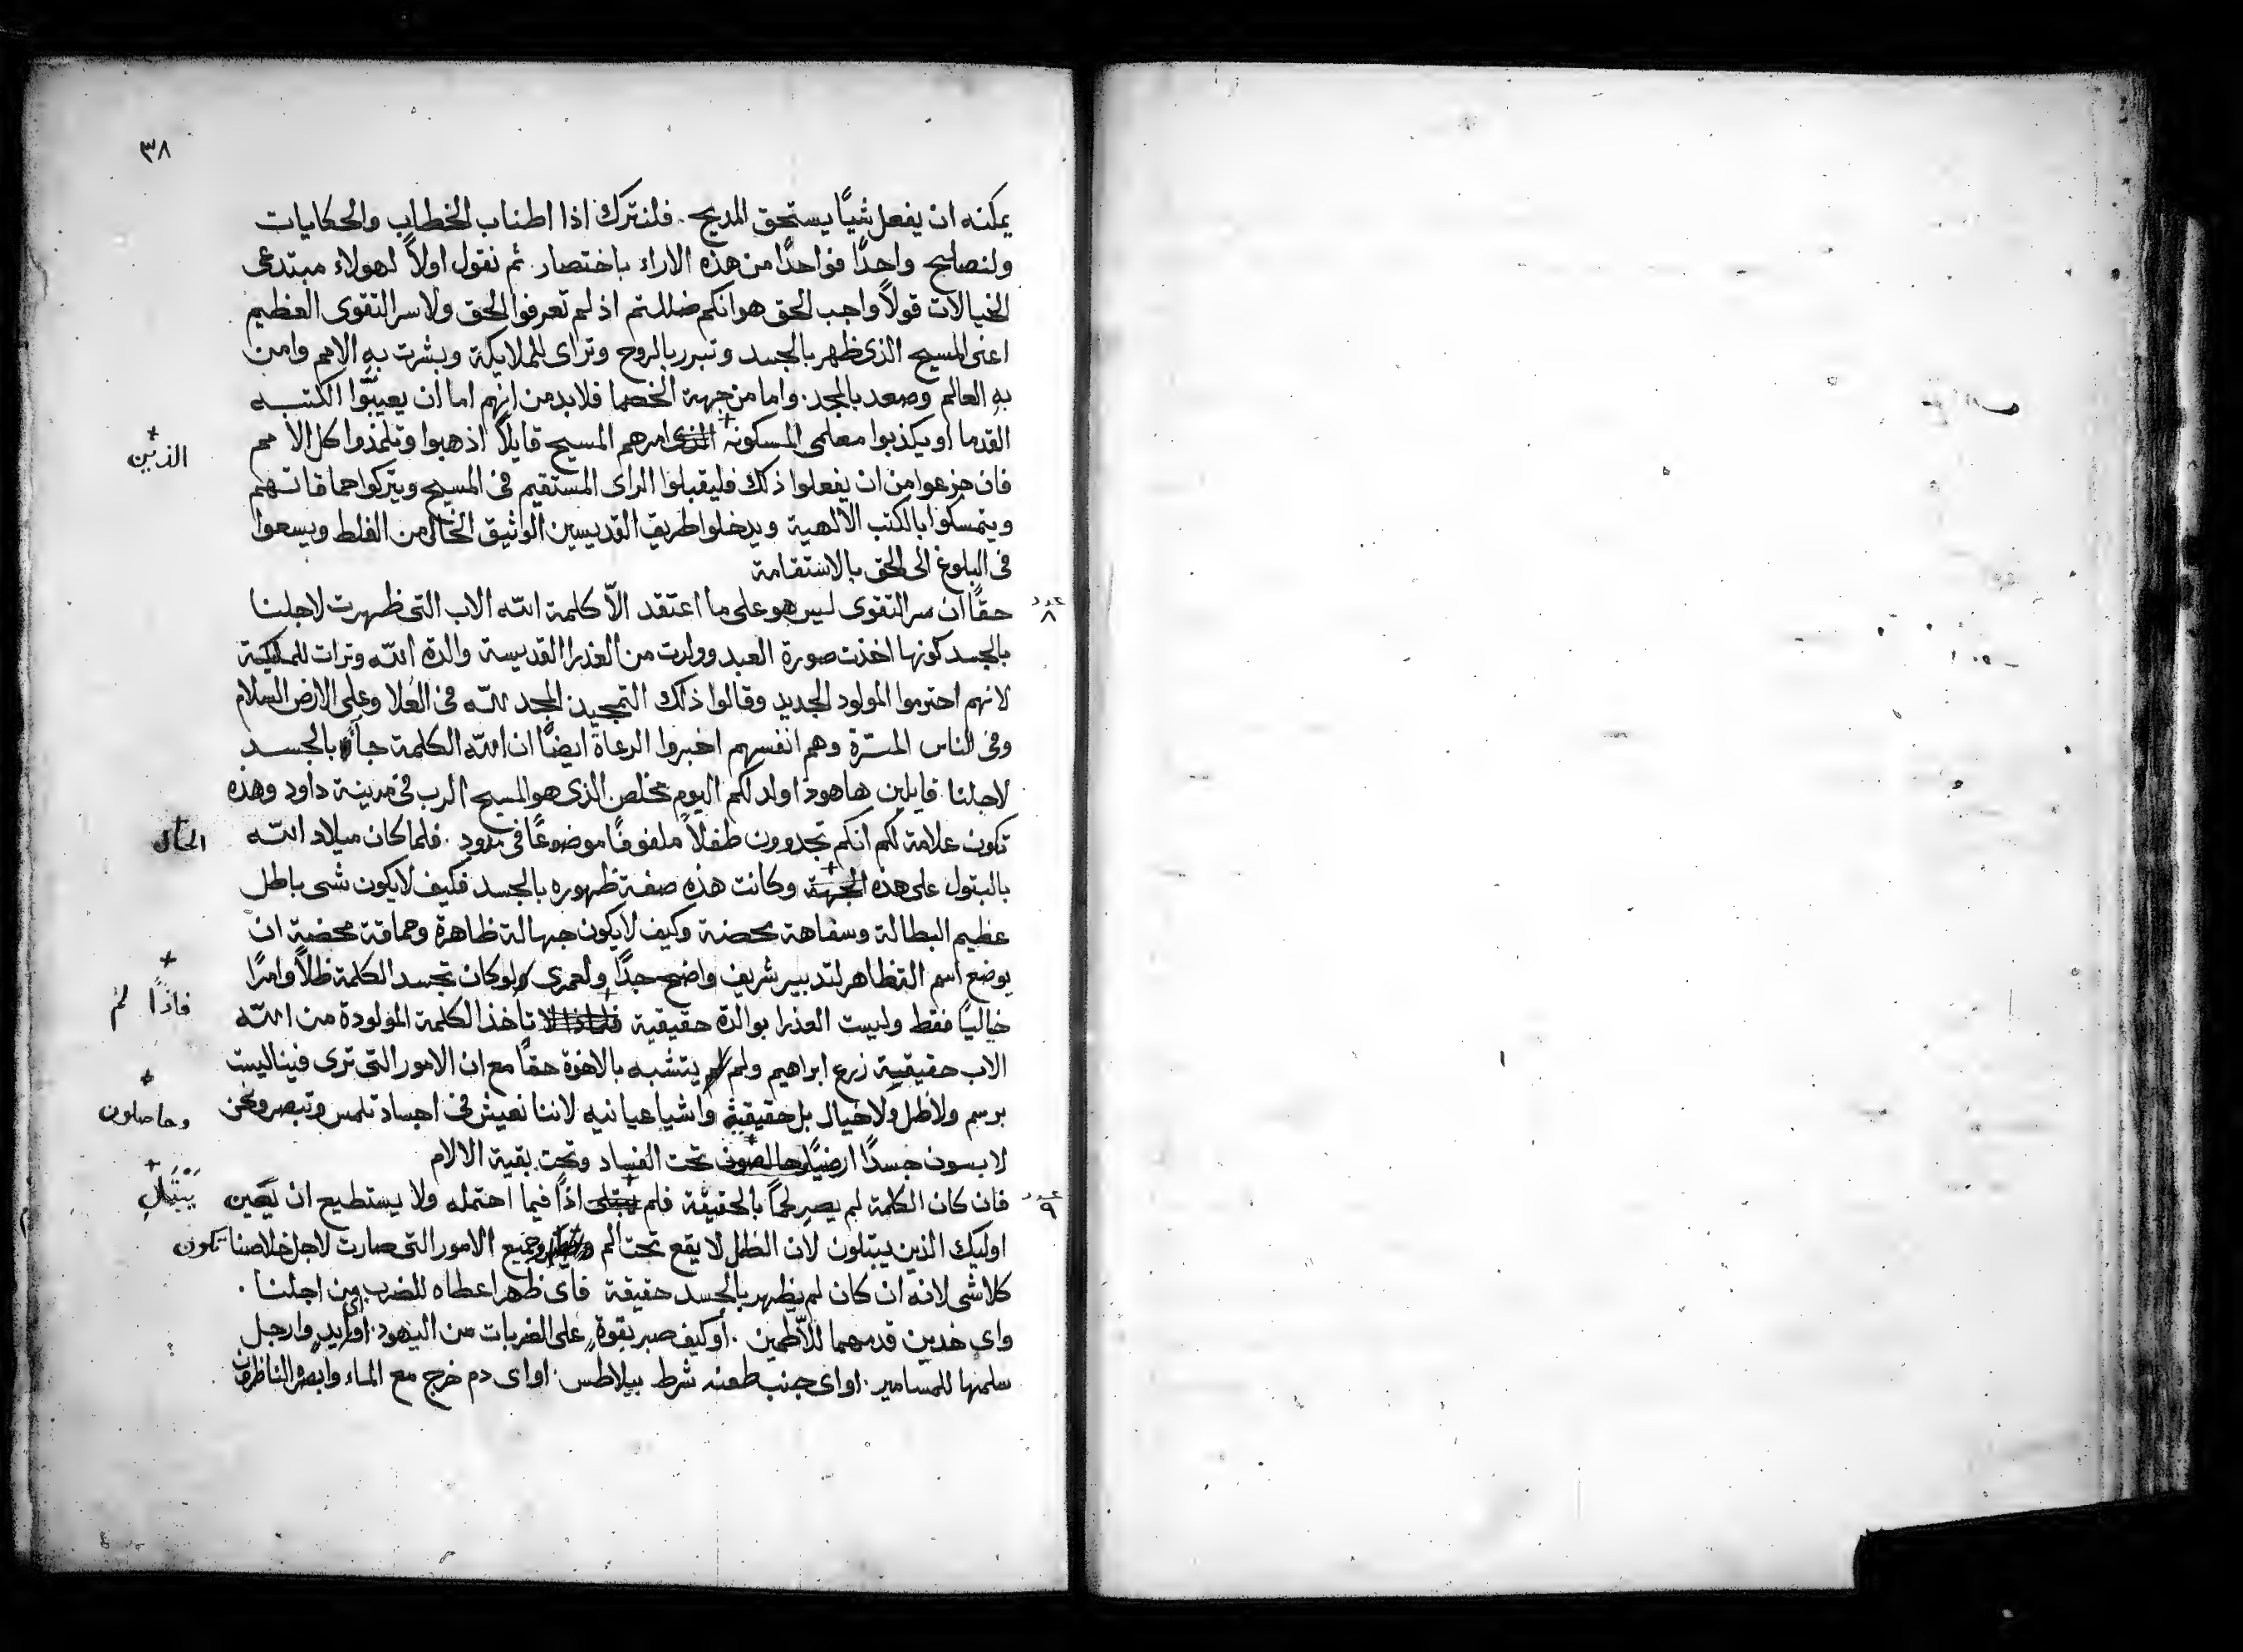 ٣٨
يمكنه ان يفعل شيًا يستحق المديح. فلنترك اذا اطناب الخطاب والحكايات
ولنصلح واحدًا فواحدًا من هذه الاراء باختصار. ثم نقول اولاً لهولاء مبتدعى
الخيالات قولاً واجب الحق هو انكم ضللتم اذ لم تعرفوا الحق ولا سر التقوى العظيم
اعنى المسيح الذى ظهر بالجسد وتبرر بالروح وتراى للملايكة وبشرت به الامم وامن
به العالم وصعد بالمجد. واما من جهة الخصما فلا بد من انهم اما ان يعيبّوا الكتبه
القدما او يكذبوا معلمى المسكونة الذى امرهم المسيح قايلاً اذهبوا وتلمذوا كل الامم
الذين
فان جزعوا من ان يفعلوا ذلك فليقبلوا الراى المستقيم فى المسيح ويتركوا حماقاتهم
ويتمسكوا بالكتب الالهية ويدخلوا طريق القديسين الوثيق الخالى من الغلط ويسعوا
فى البلوغ الى الحق بالاستقامة
عدد ٨
حقًا ان سر التقوى ليس هو على ما اعتقد الاّ كلمة الله الاب التى ظهرت لاجلنا
بالجسد كونها اخذت صورة العبد وولدت من العذرا القديسة والدة الله وترات للملايكة
لانهم احترموا المولود الجديد وقالوا ذلك التمجيد المجد لله فى العُلا وعلى الارض السلام
وفى الناس المسرّة وهم انفسهم اخبروا الرعاة ايضًا ان الله الكلمة جاء بالجسد
لاجلنا. قايلين ها هوذا ولد لكم اليوم مخلص الذى هو المسيح الرب فى مدينة داود وهذه
تكون علامة لكم انكم تجدوون طفلاً ملفوفًا موضوعًا فى مزود. فلما كان ميلاد الله
الحال
بالبتول على هذه الجهة وكانت هذه صفة ظهوره بالجسد فكيف لا يكون شى باطل
عظيم البطالة وسفاهة محضة وكيف لا يكون جهالة ظاهرة وحماقة محضة ان
يوضع اسم التظاهر لتدبير شريف واضح جدًا ولعمرى لو كان تجسد الكلمة ظلاً وامرًا
خياليًا فقط وليست العذرا بوالدة حقيقية فلماذا لا تاخذ الكلمة المولودة من الله
فاذًا لم
الاب حقيقية زرع ابراهيم ولم يتشبه بالاخوة حقًا مع ان الامور التى ترى فينا ليست
برسم ولا ظل ولا خيال بل حقيقية واشيا عيانيه لاننا نعيش فى اجساد تلمس وتبصر ونحن
وحاصلون
لابسون جسدًا ارضيًا وحالصون تحت الفساد وتحت بقية الالام
عدد ٩
فان كان الكلمة لم يصير لحمًا بالحقيقة فلم يبتلى اذًا فيما احتمله ولا يستطيع ان يعين
يُبتَلِ
اوليك الذين يبتلون لان الظل لا يقع تحت الم وجميع الامور التى صارت لاجل خلاصنا تكون
كلاشى لانه ان كان لم يظهر بالجسد حقيقة فاى ظهر اعطاه للضرب من اجلنا.
واى خدين قدمهما للاطمين. او كيف صبر بقوةٍ على الضربات من اليهود. او اى ايدٍ وارجل
سلمها للمسامير. او اى جنب طعنه شرط بيلاطس. او اى دم خرج مع الماء وابصر الناظرون